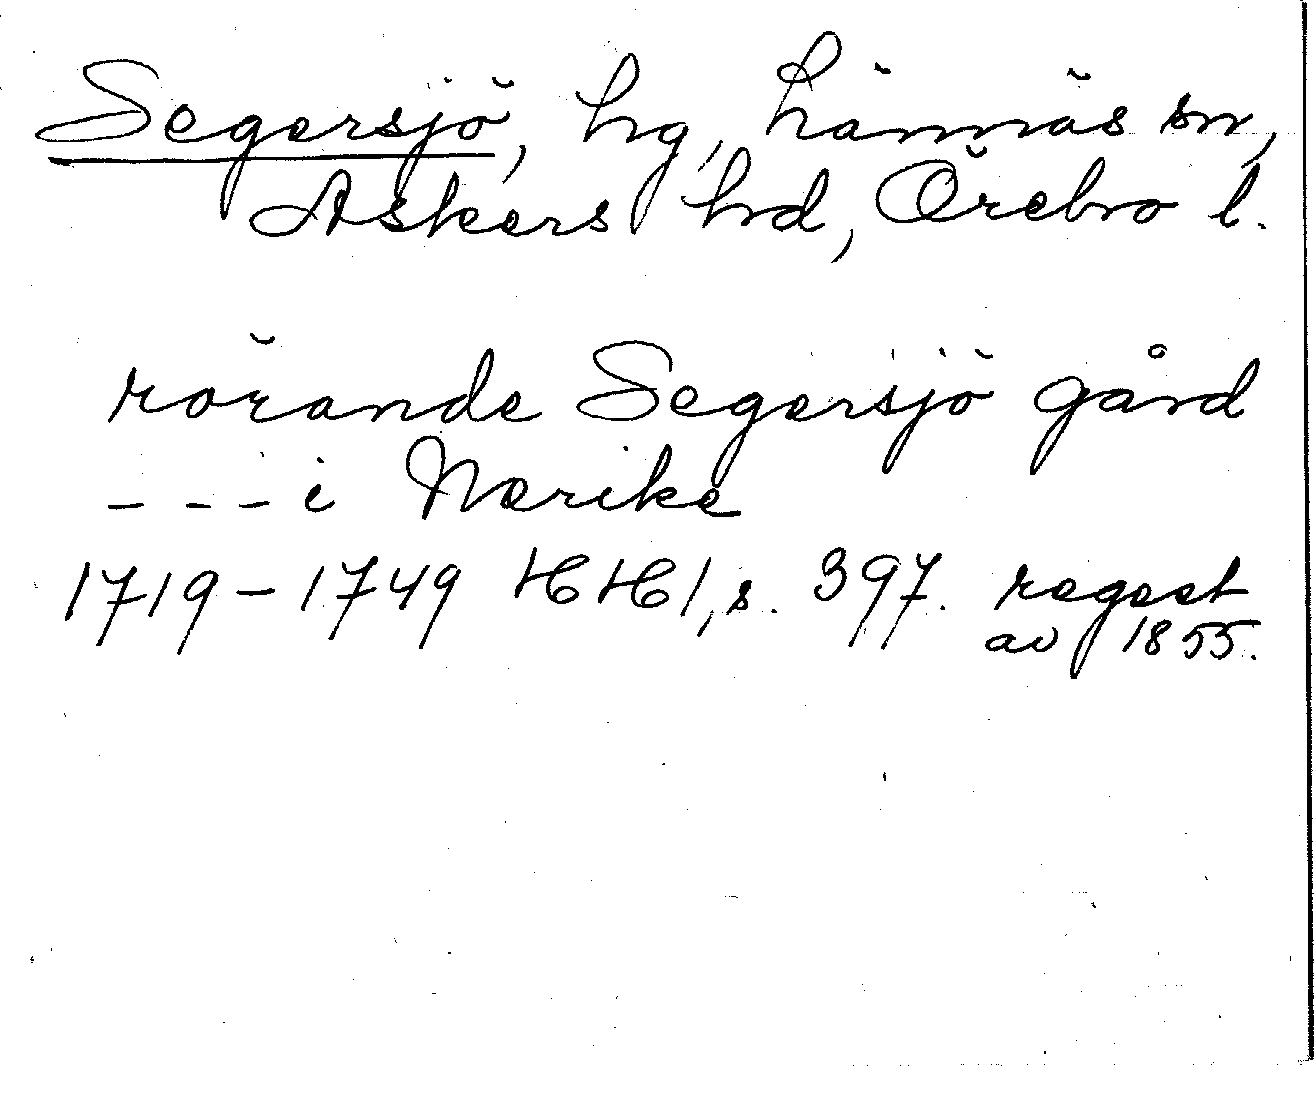 Segersjö, hg, Lännäs sn,
Askers hd, Örebro l.
rörande Segersjö gård
--- i Nærike
1719-1749 HH1, s. 397. regest
av 1855.